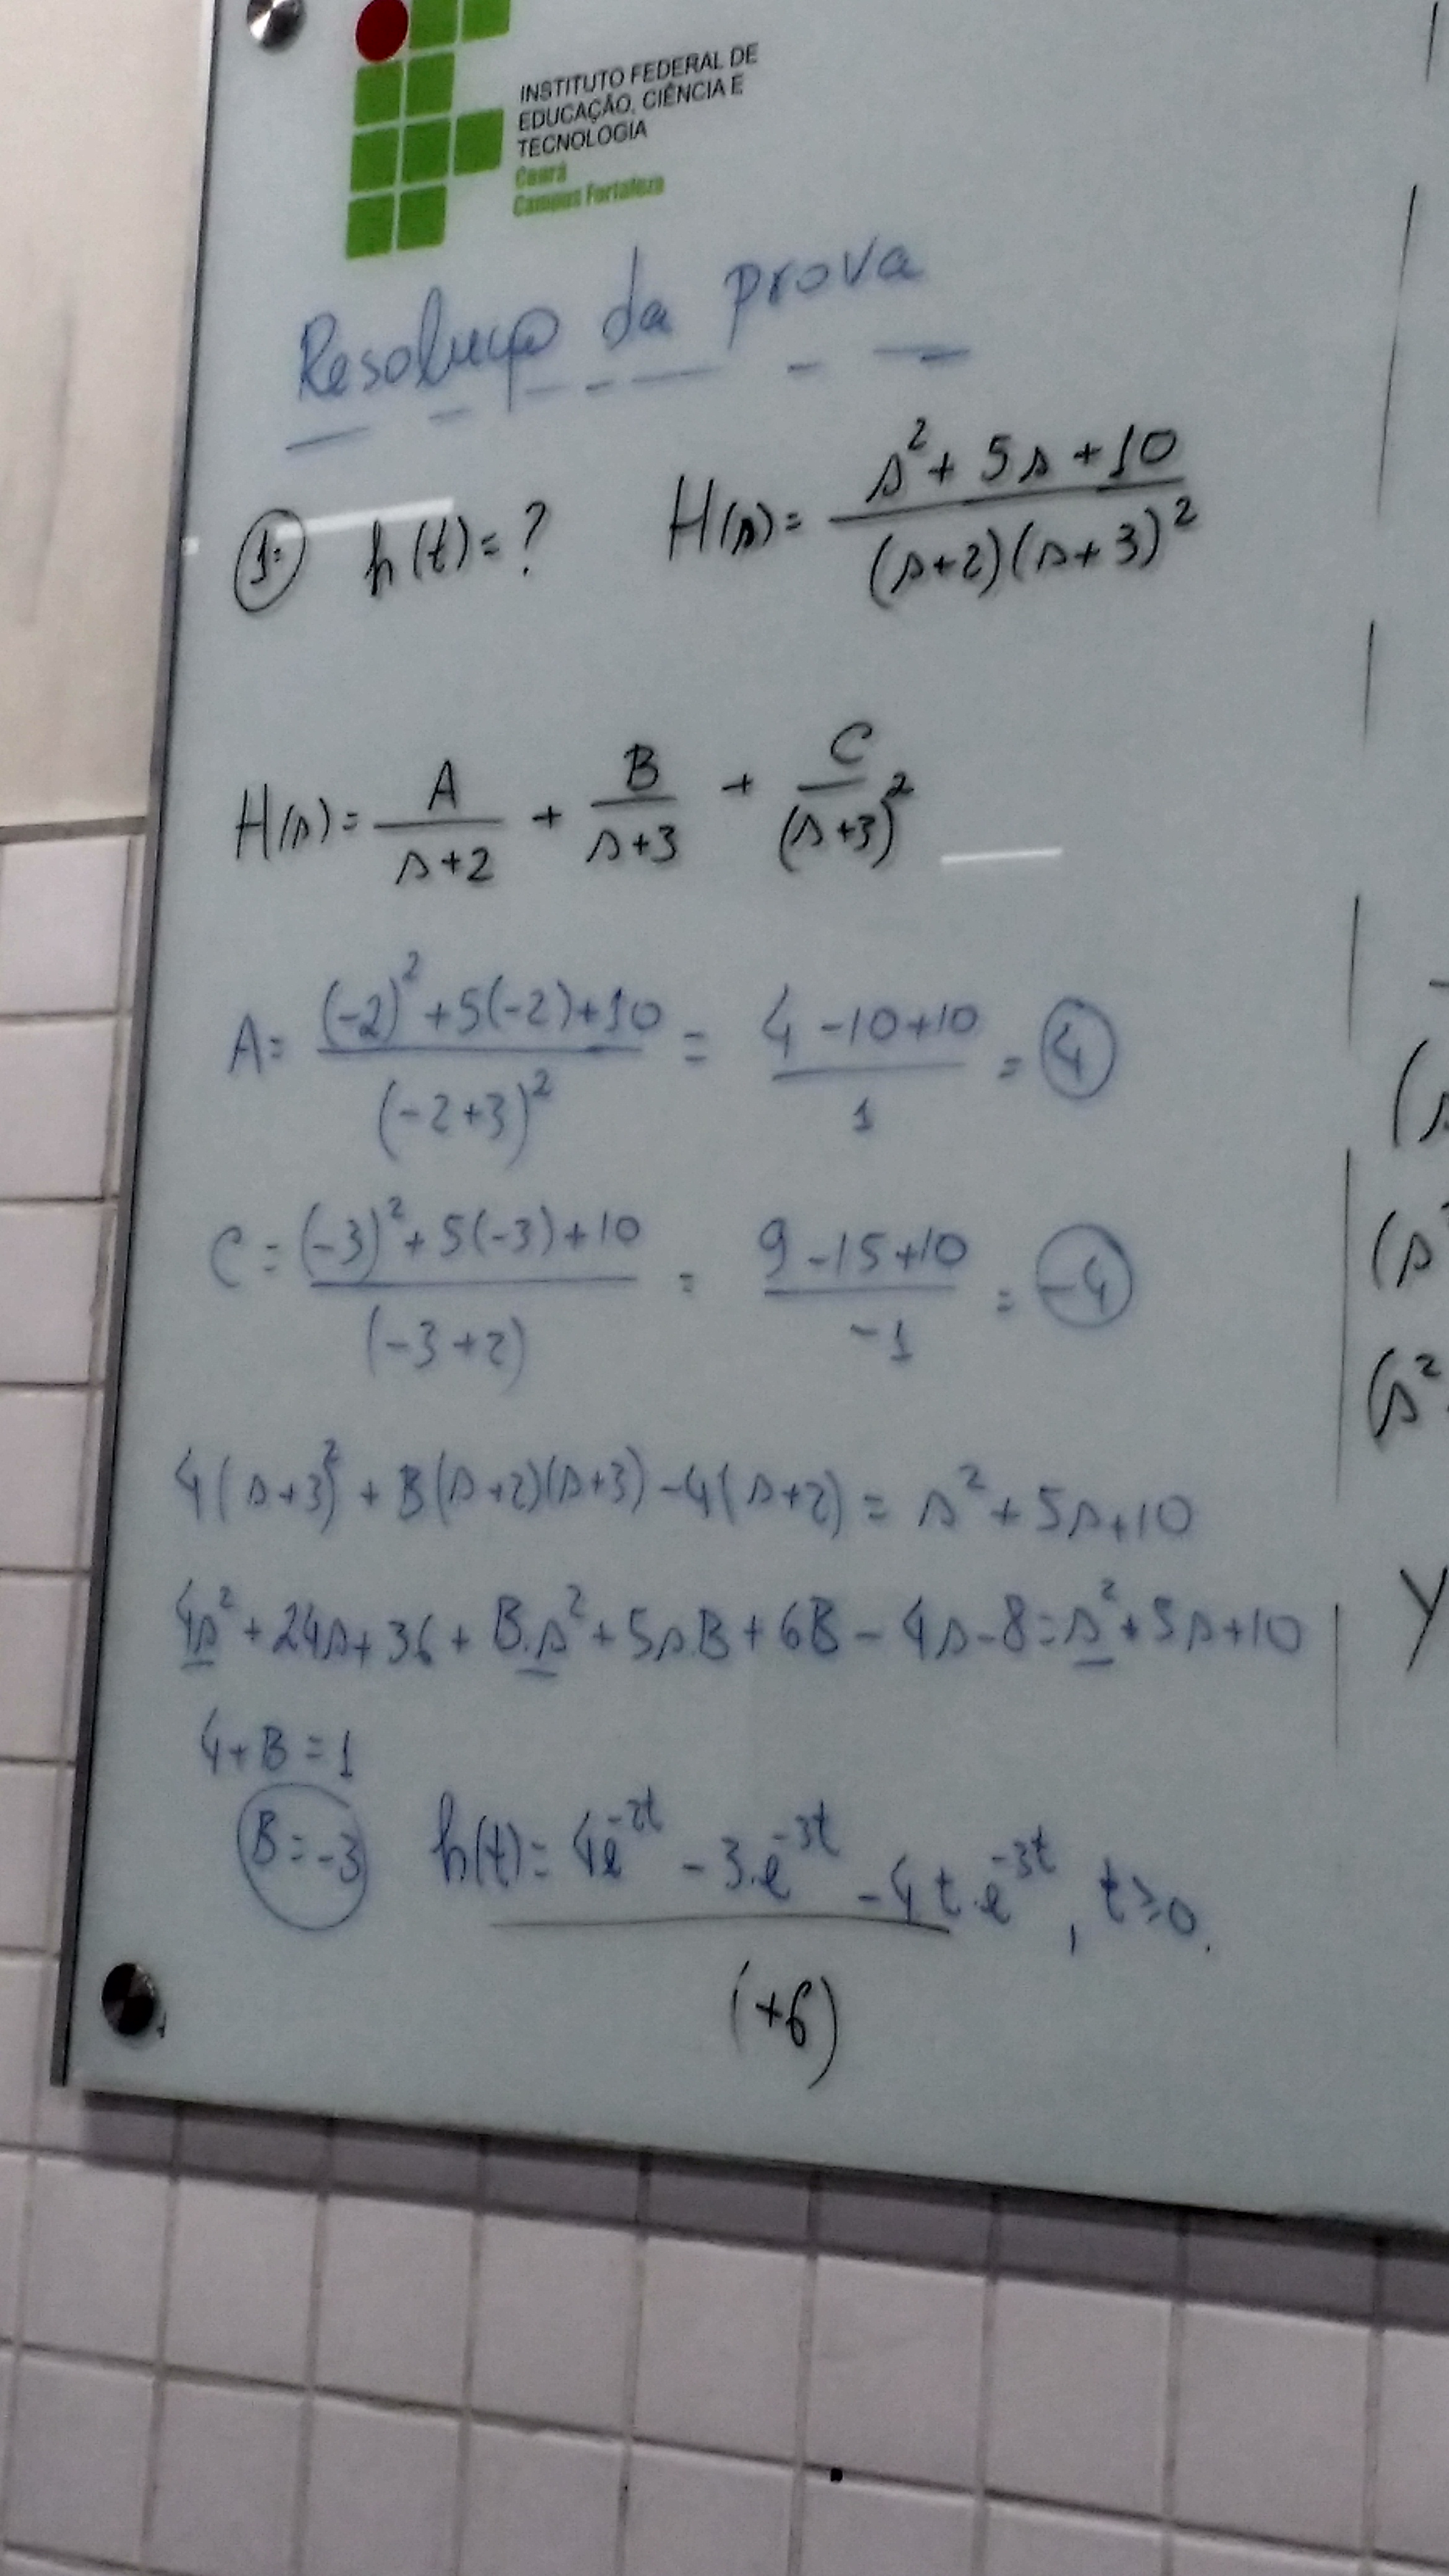 INSTITUTO FEDERAL DE
EDUCAÇÃO, CIÊNCIA E
TECNOLOGIA
Ceará
Campus Fortaleza
Resolução da prova
1. h(t)=? H(s)= (s²+5s+10)/((s+2)(s+3)²)
H(s)= A/(s+2) + B/(s+3) + C/(s+3)²
A= ((-2)²+5(-2)+10)/(-2+3)² = (4-10+10)/1 = 4
C= ((-3)²+5(-3)+10)/(-3+2) = (9-15+10)/-1 = -4
4(s+3)²+B(s+2)(s+3)-4(s+2)= s²+5s+10
4s²+24s+36+B.s²+5s.B+6B-4s-8=s²+5s+10
4+B=1
B=-3 h(t)= 4e^-2t - 3.e^-3t - 4t.e^-3t, t≥0.
(+6)
(s
(s
(s²
Y